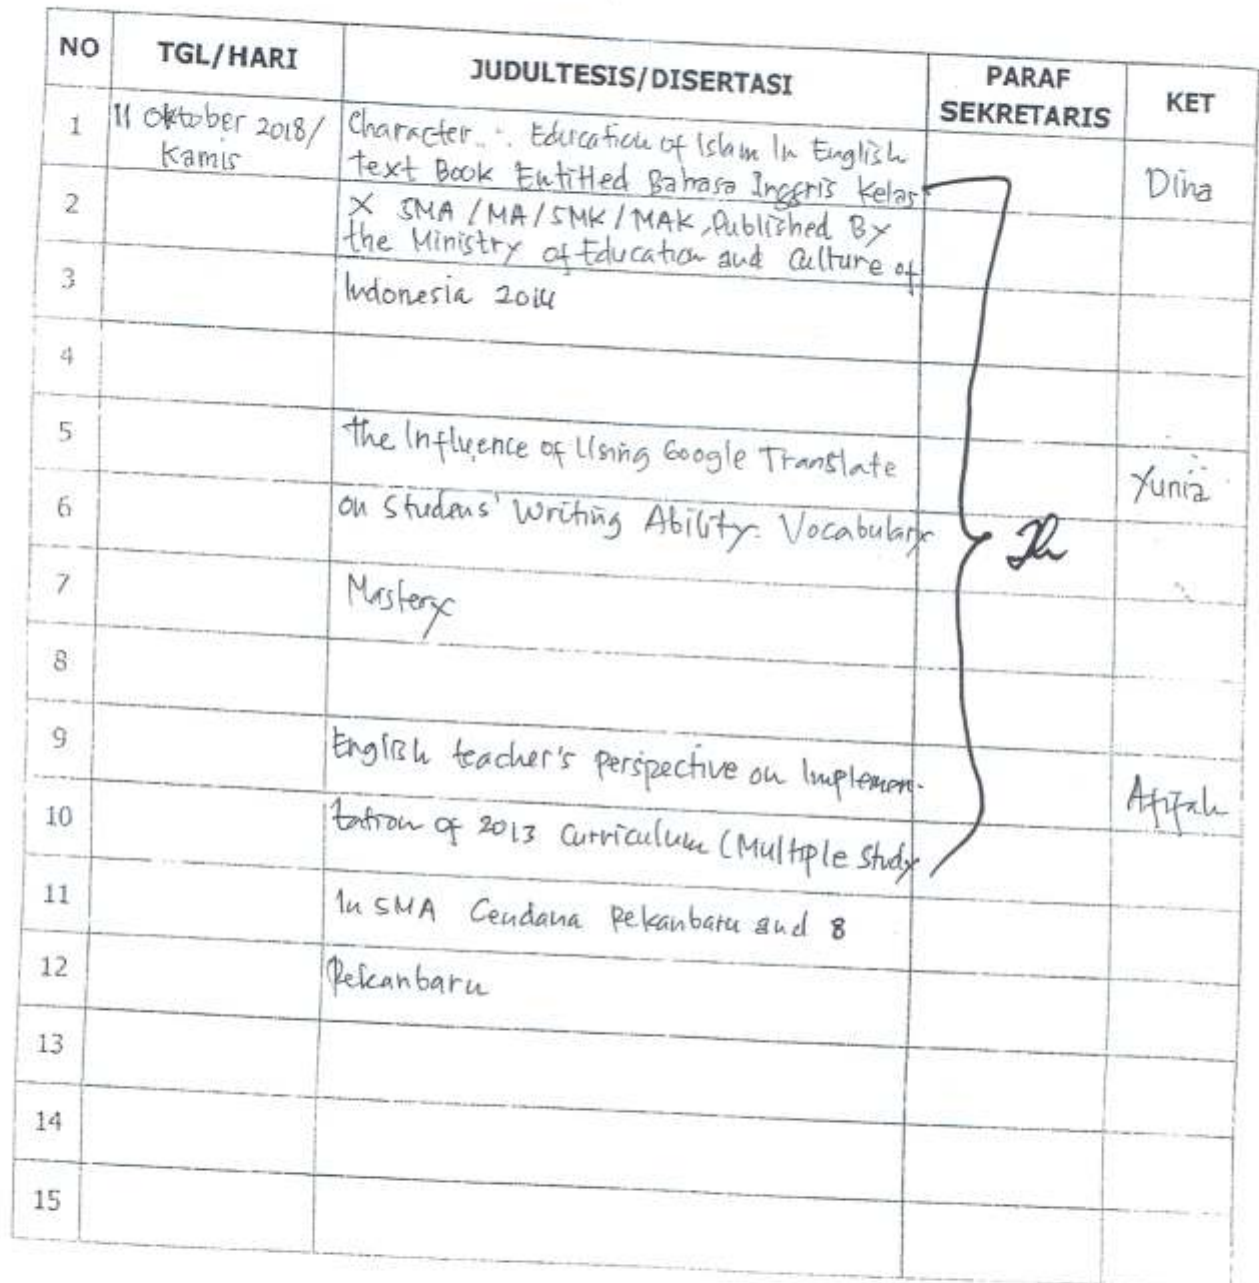 NO TGL/HARI JUDULTESIS/DISERTASI PARAF SEKRETARIS KET
1 11 Oktober 2018/ Character Education of Islam In English
Kamis text Book Entitled Bahasa Inggris Kelas Dina
2 X SMA/MA/SMK/MAK, Published By
the Ministry of Education and Culture of
3 Indonesia 2014
4
5 the Influence of Using Google Translate Yunia
6 on Studens' Writing Ability. Vocabulary
7 Mastery
8
9 English teacher's perspective on Implemen- Afifah
10 tation of 2013 Curriculum (Multiple Study
11 In SMA Cendana Pekanbaru and 8
12 Pekanbaru
13
14
15